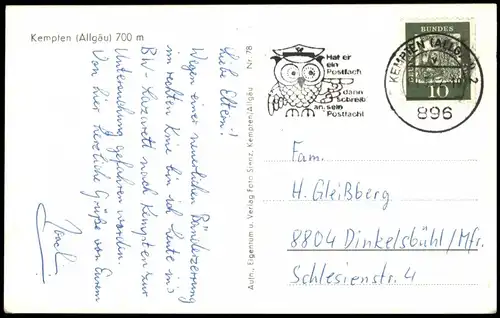 Kempten (Allgäu) 700 m
Liebe Eltern!
Wegen einer neuerlichen Bänderzerrung
im rechten Knie bin ich heute in's
BW-Lazarett nach Kempten zur
Untersuchung gefahren worden.
Von hier herzliche Grüße von Eurem
Nr. 78
Aufn., Eigentum u. Verlag Foto Stenz, Kempten/Allgäu
Hat er
ein
Postfach
dann
schreib
an sein
Postfach!
KEMPTEN (ALLGÄU) 2
896
DEUTSCHE
BUNDESPOST
10
Fam.
H. Gleißberg
8804 Dinkelsbühl/Mfr.
Schlesienstr. 4